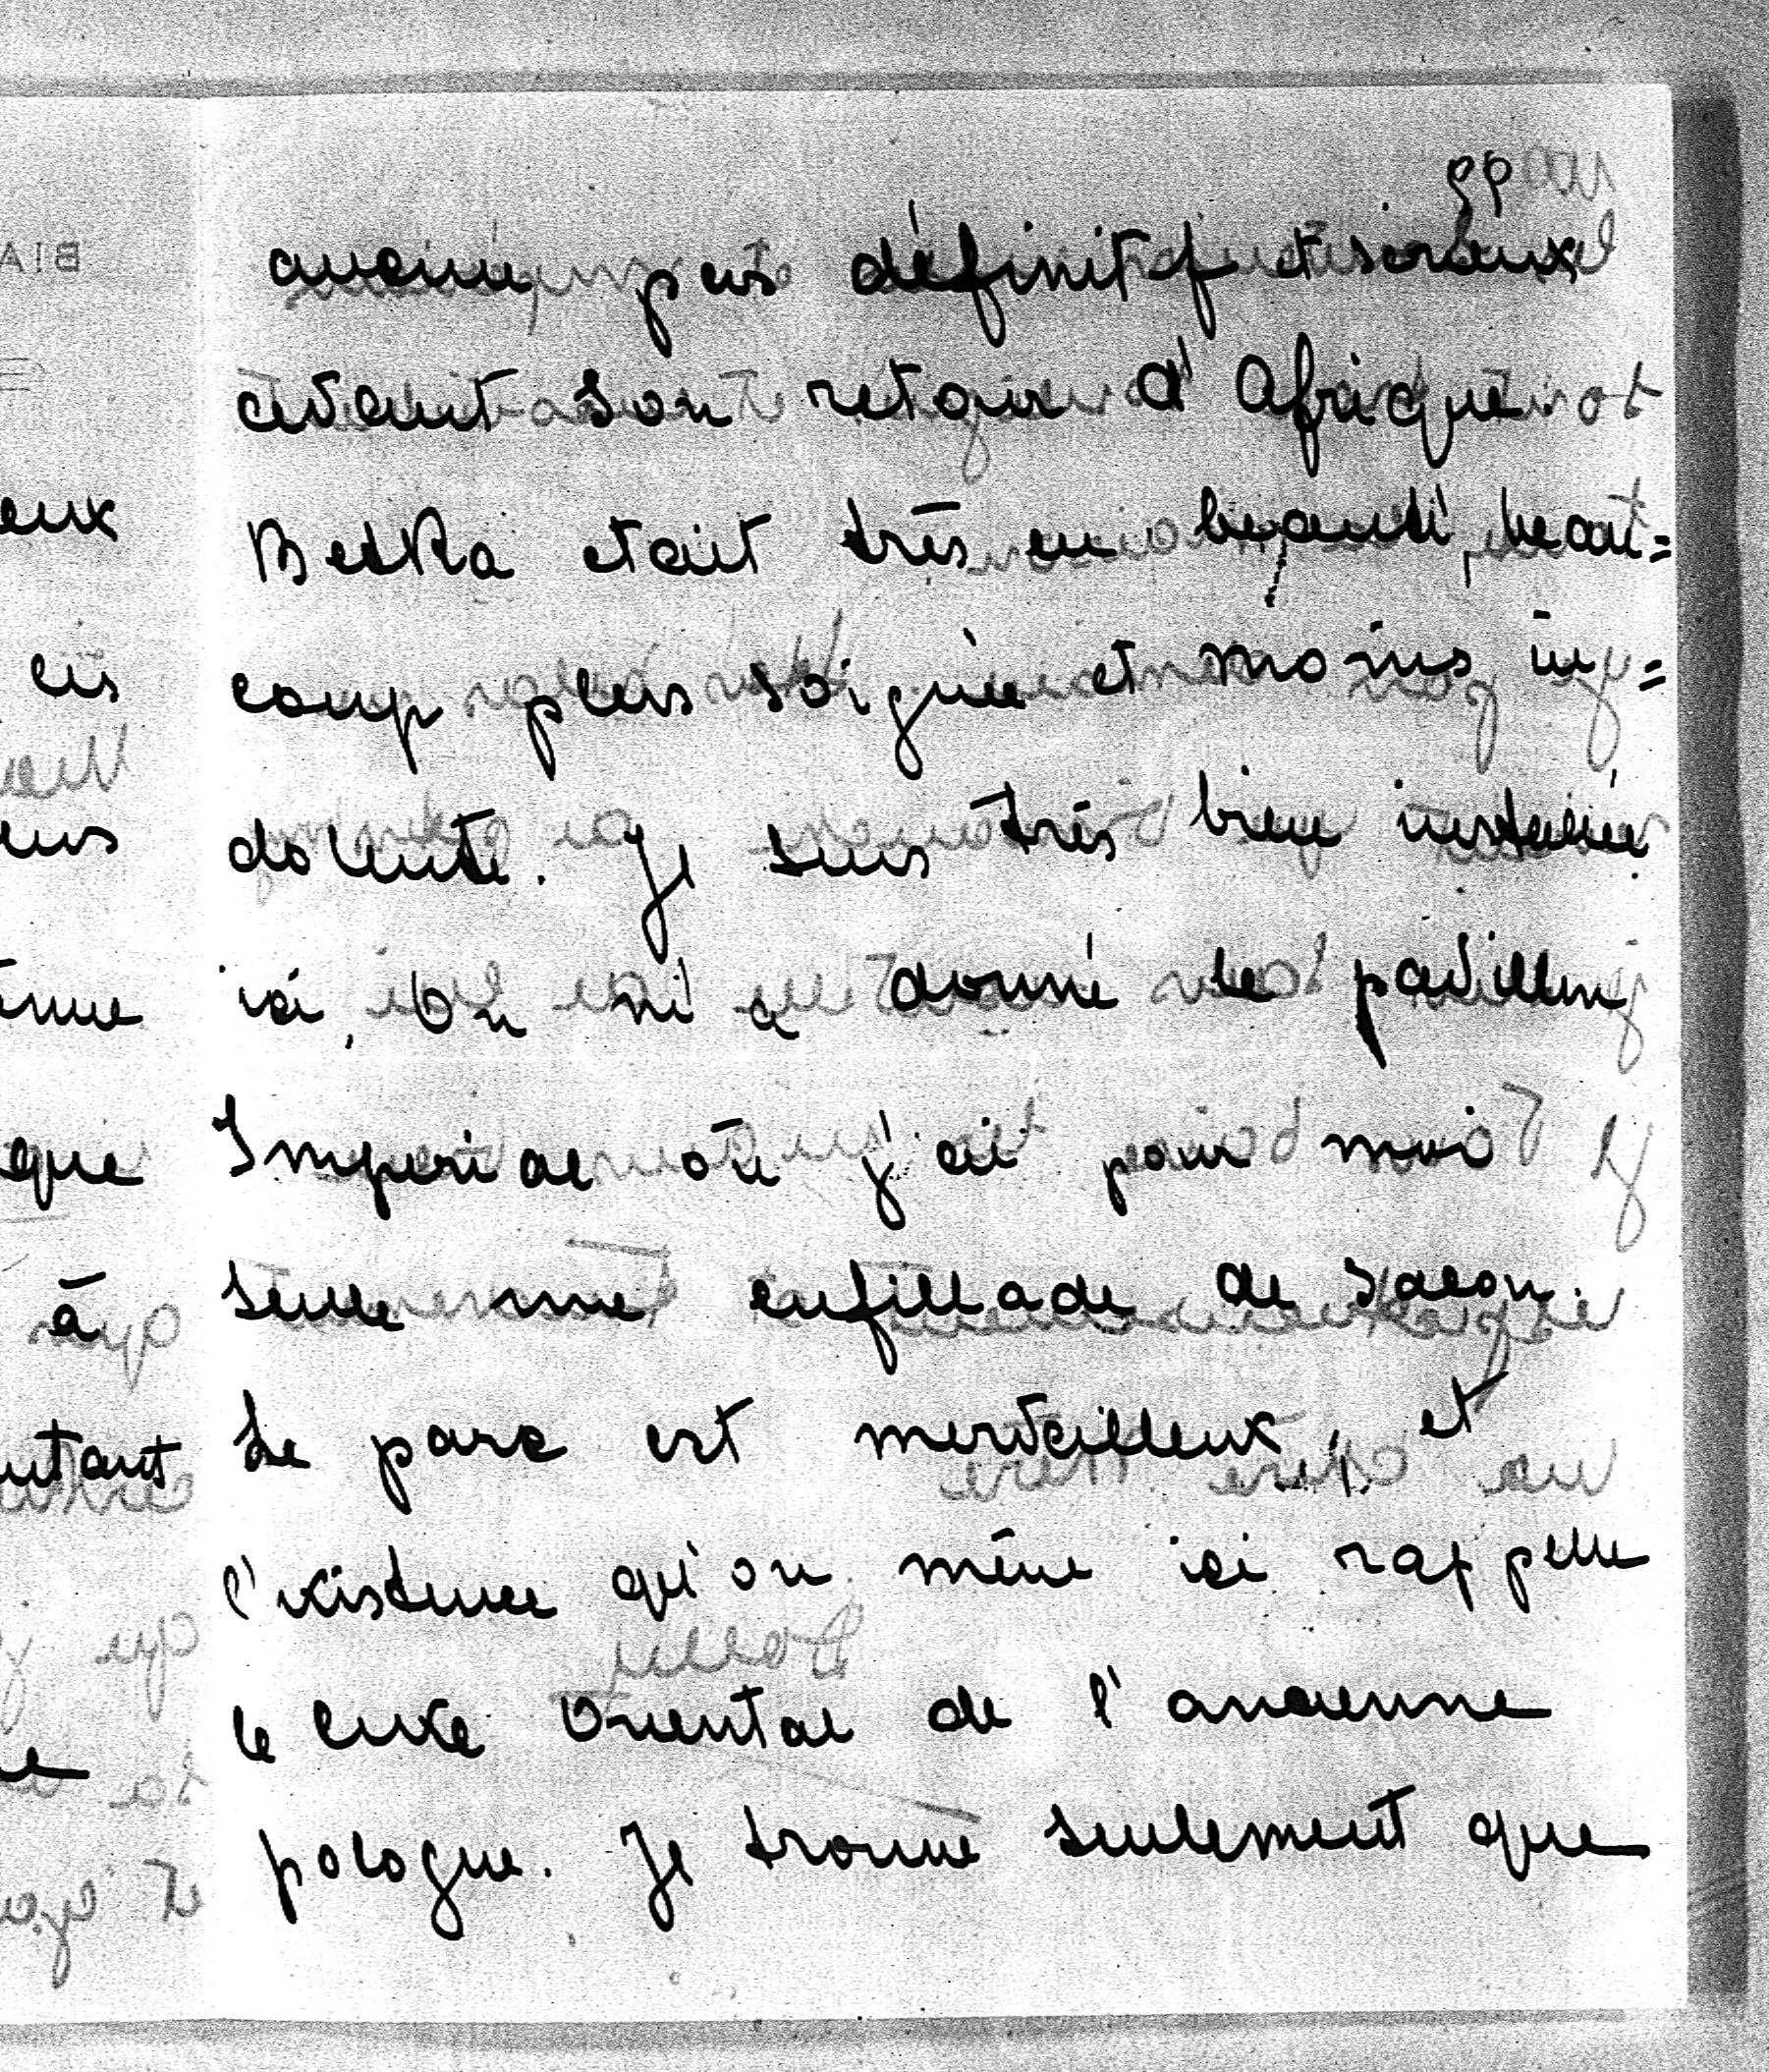 99
aucun pas définitif et serieux
avant son retour d'Afrique.
Betka etait très en beauté, beau=
coup plus soignée et moins in=
dolente. Je suis très bien installée
ici, On m'a donné le pavillon
Imperial où j'ai pour moi
seule une enfillade de salon.
Le parc est merveilleux, et
l'existence qu'on mène ici rappelle
le luxe Oriental de l'ancienne
pologne. Je trouve seulement que